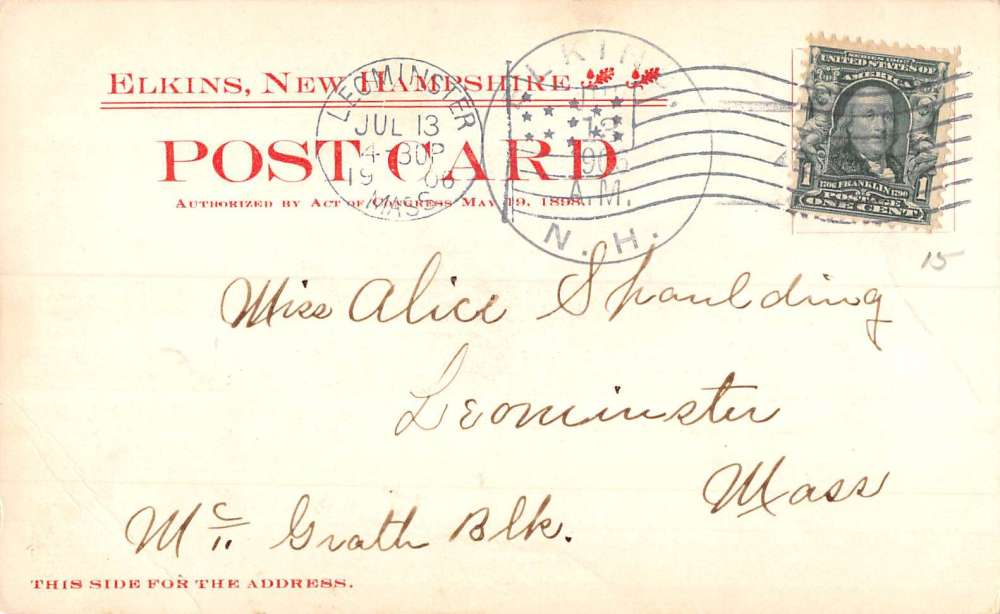 ELKINS, NEW HAMPSHIRE
POST CARD
AUTHORIZED BY ACT OF CONGRESS MAY 19, 1898.
LEOMINSTER
JUL 13
4-30P
19 06
MASS
ELKINS,
13
1906
A.M.
N.H.
SERIES 1902
UNITED STATES OF
AMERICA
1706 FRANKLIN 1790
1 1
POSTAGE
ONE CENT
15
Miss Alice Shaulding
Leominster
Mass
Mc Grath Blk.
THIS SIDE FOR THE ADDRESS.